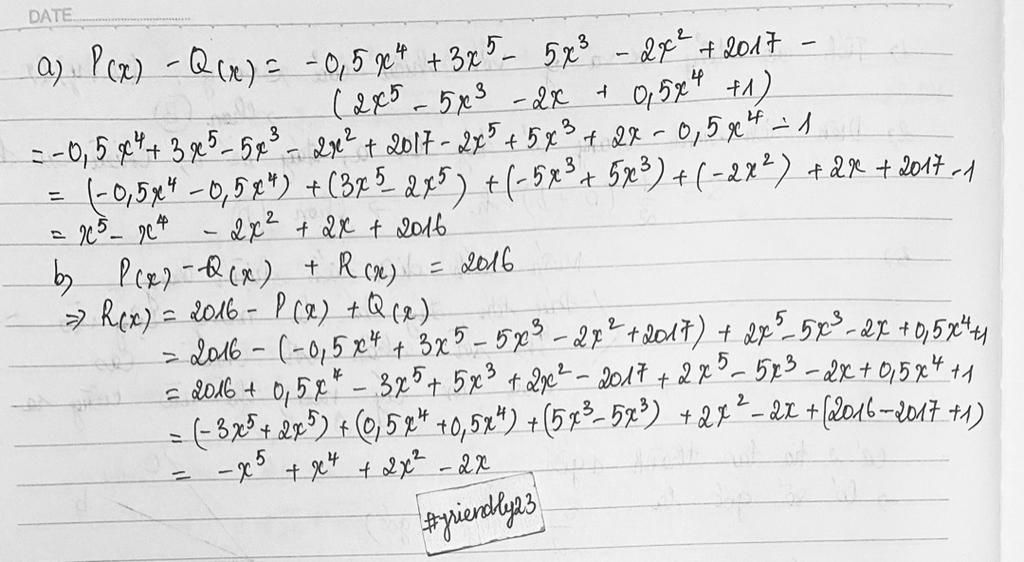 DATE
a) P(x) - Q(x) = -0,5x⁴ + 3x⁵ - 5x³ - 2x² + 2017 -
(2x⁵ - 5x³ - 2x + 0,5x⁴ + 1)
= -0,5x⁴ + 3x⁵ - 5x³ - 2x² + 2017 - 2x⁵ + 5x³ + 2x - 0,5x⁴ - 1
= (-0,5x⁴ - 0,5x⁴) + (3x⁵ - 2x⁵) + (-5x³ + 5x³) + (-2x²) + 2x + 2017 - 1
= x⁵ - x⁴ - 2x² + 2x + 2016
b) P(x) - Q(x) + R(x) = 2016
⇒ R(x) = 2016 - P(x) + Q(x)
= 2016 - (-0,5x⁴ + 3x⁵ - 5x³ - 2x² + 2017) + 2x⁵ - 5x³ - 2x + 0,5x⁴ + 1
= 2016 + 0,5x⁴ - 3x⁵ + 5x³ + 2x² - 2017 + 2x⁵ - 5x³ - 2x + 0,5x⁴ + 1
= (-3x⁵ + 2x⁵) + (0,5x⁴ + 0,5x⁴) + (5x³ - 5x³) + 2x² - 2x + (2016 - 2017 + 1)
= -x⁵ + x⁴ + 2x² - 2x
#friendly23